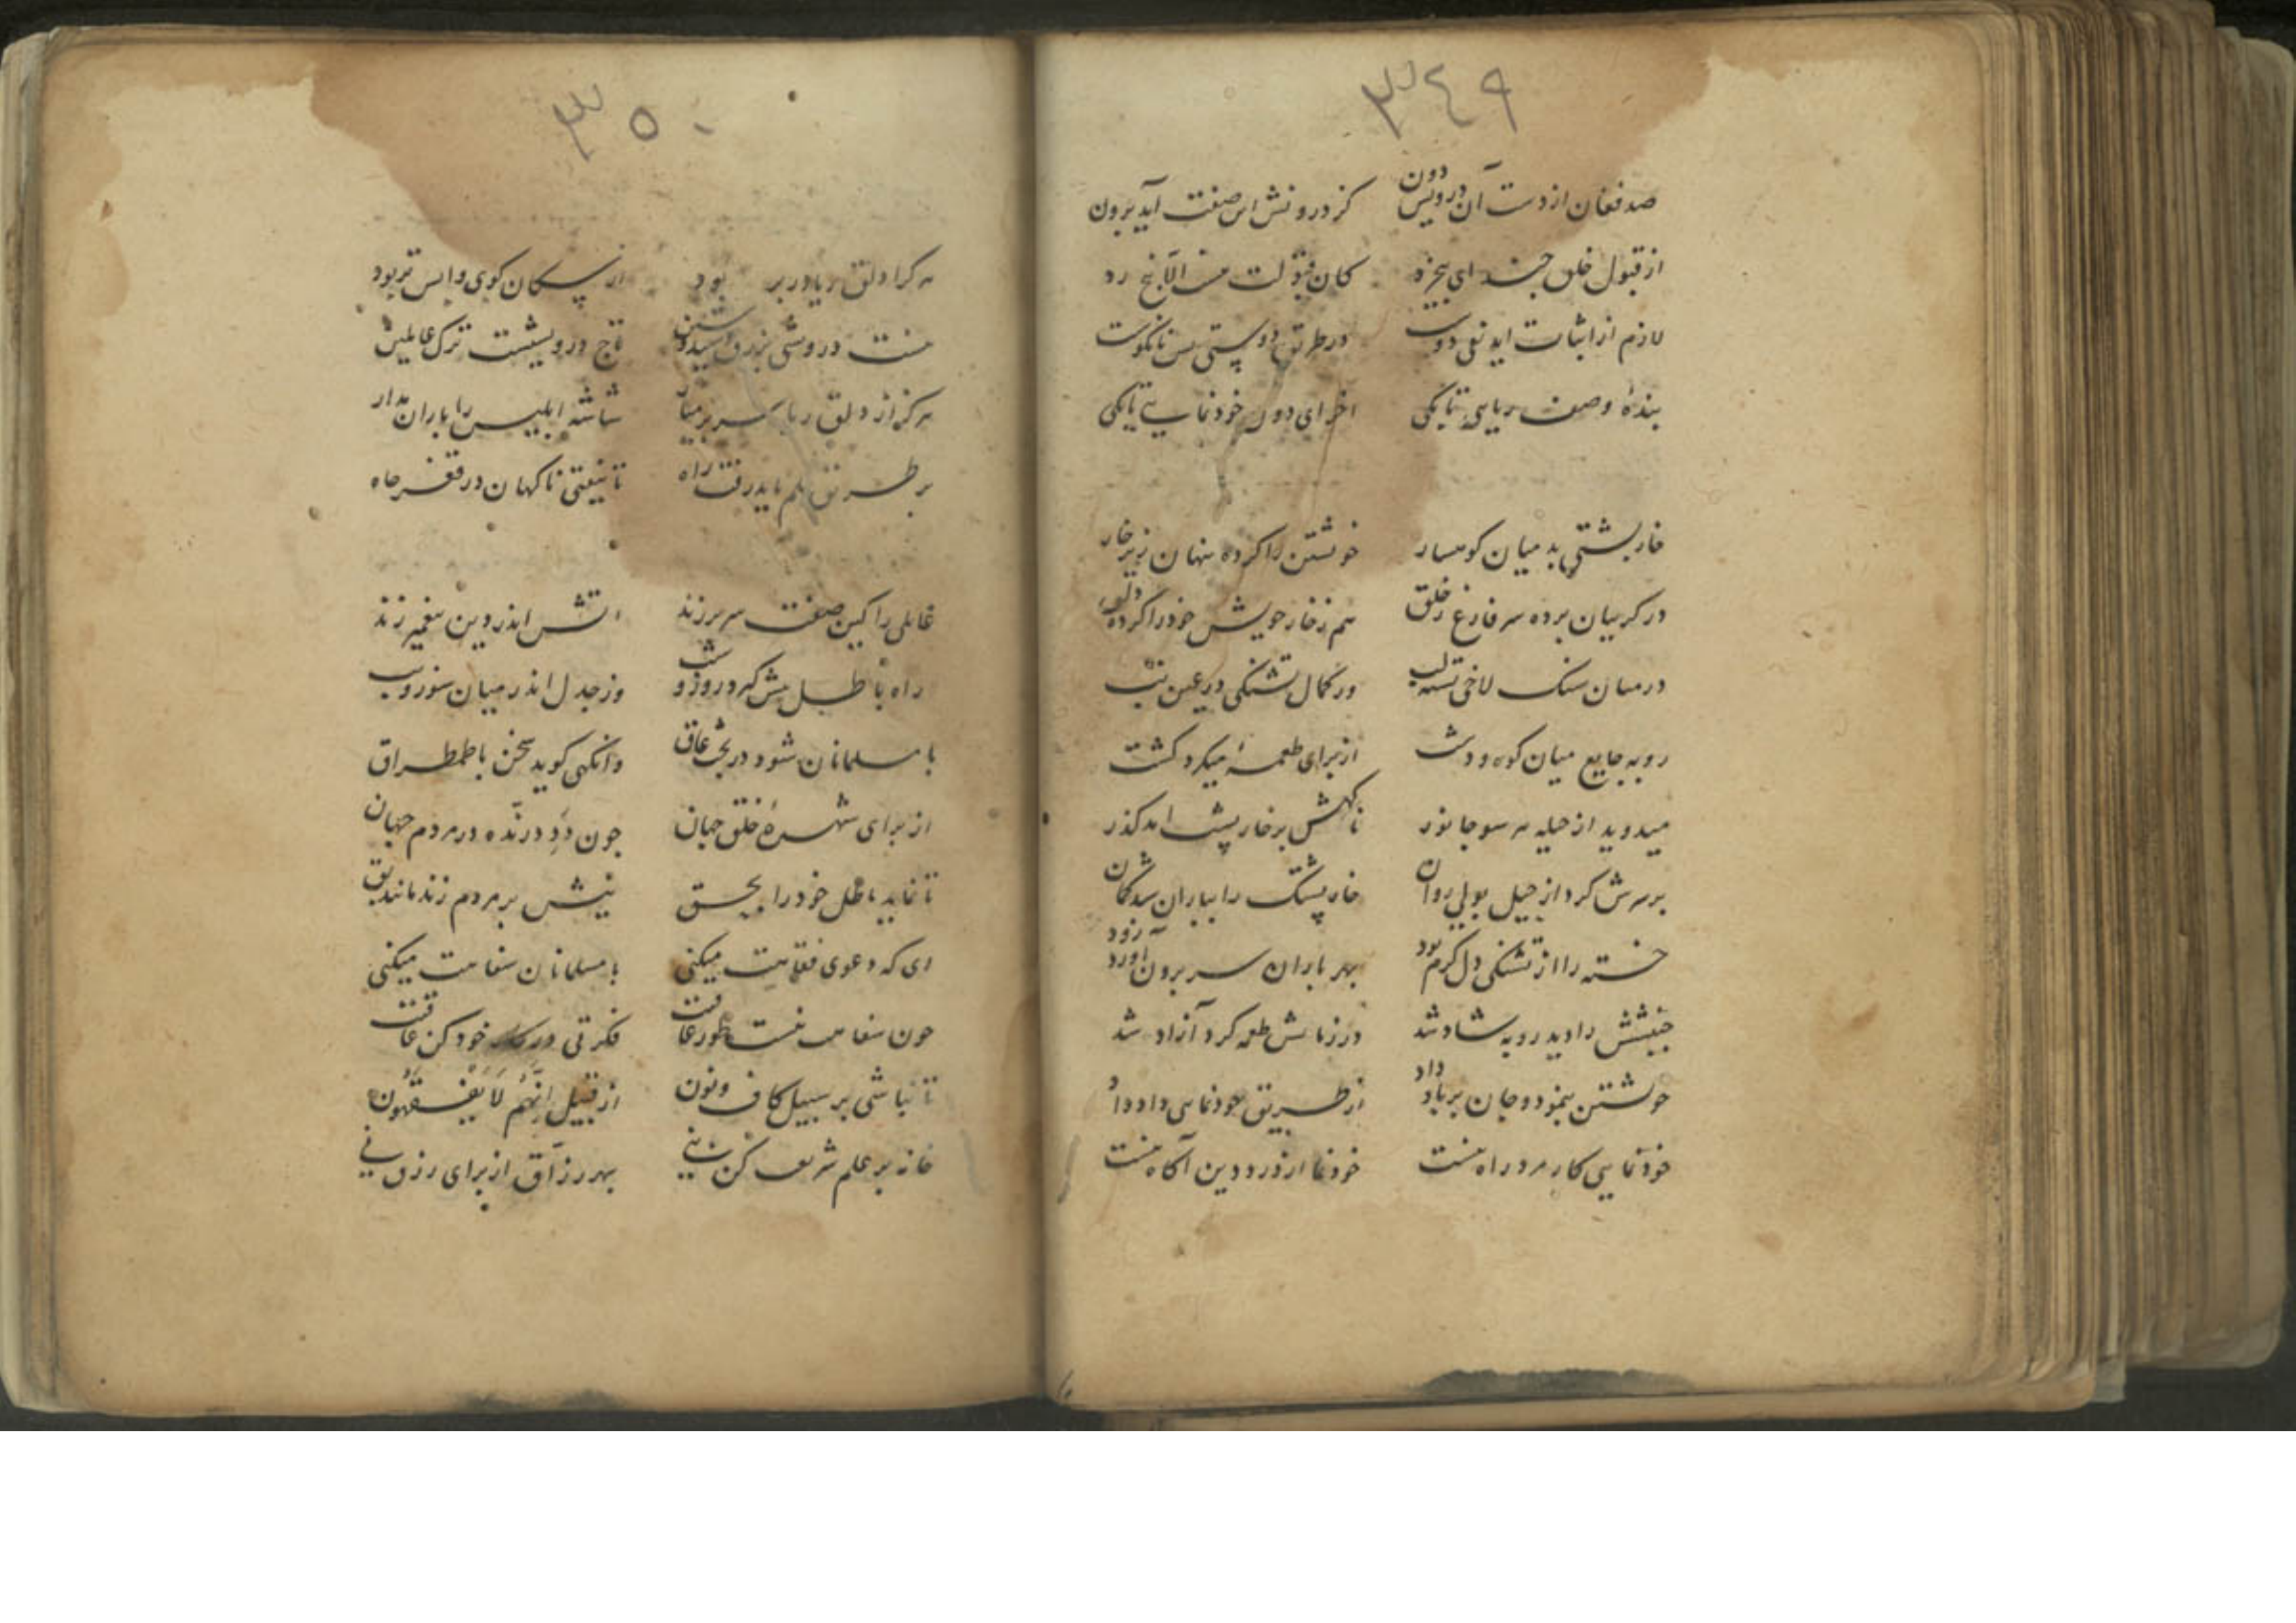 ۳٤٩
صد فغان از دست آن درویس دون کز درونش این صفت آید برون
از قبول خلق چند ای بیخرد کان قبولت
لازم از اثبات اید نفی دوست در طریق دوستی بس نانکوست
بندهٔ وصف ریایی تا بکی اخر ای دون خودنمایی تا بکی
خارپشتی بد میان کوهسار خویشتن را کرده پنهان زیر خار
در کریبان برده سر فارغ ز خلق هم ز خار خویش خود را کرده دلق
در میان سنک لاخی تشنه لب در کمال تشنکی در عین تب
روبه جایع میان کوه و دشت از برای طعمهٔ میکرد کشت
میدوید از حیله هر سو جانور ناکهش بر خارپشت امد کذر
بر سرش کرد از حیل بولی روان خارپشتک را بباران شد کمان
خسته را از تشنکی دل کرم بود بهر باران سر برون آورد زود
جنبشش را دید روبه شاد شد در زمانش طعمه کرد آزاد شد
خویشتن بنمود و جان بر باد داد از طریق خودنمایی داد داد
خودنمایی کار مرد راه نیست خودنما از درد دین آکاه نیست
۳۵۰
هر کرا دلق ریا در بر بود از سکان کوی واپس تر بود
نیست درویشی بزرق تاج درویشیست ترک عالمین
هرکز از دلق ریا سر بر میار شاشه ابلیس را باران مدار
بر طریق علم باید رفت راه تا نیفتی ناکهان در قعر چاه
عاملی را کین صفت سر بر زند اتش اندر دین پیغمبر زند
راه باطل پیش کیرد روز و شب وز جدل اندر میان شور و شب
با مسلمانان شود در بحث عاق وانکهی کوید سخن با طمطراق
از برای شهرهٔ خلق جهان چون دد درنده در مردم جهان
تا نماید باطل خود را بحق نیش بر مردم زند مانند بق
ای که دعوی فقاهت میکنی با مسلمانان سفاهت میکنی
چون سفاهت نیست طور عاقبت فکرتی در کار خود کن عاقبت
تا نباشی بر سبیل کاف و نون از قبیل انهم لا یفقهون
خانه بر علم شریعت کن بنی بهر رزاق از برای رزق نی